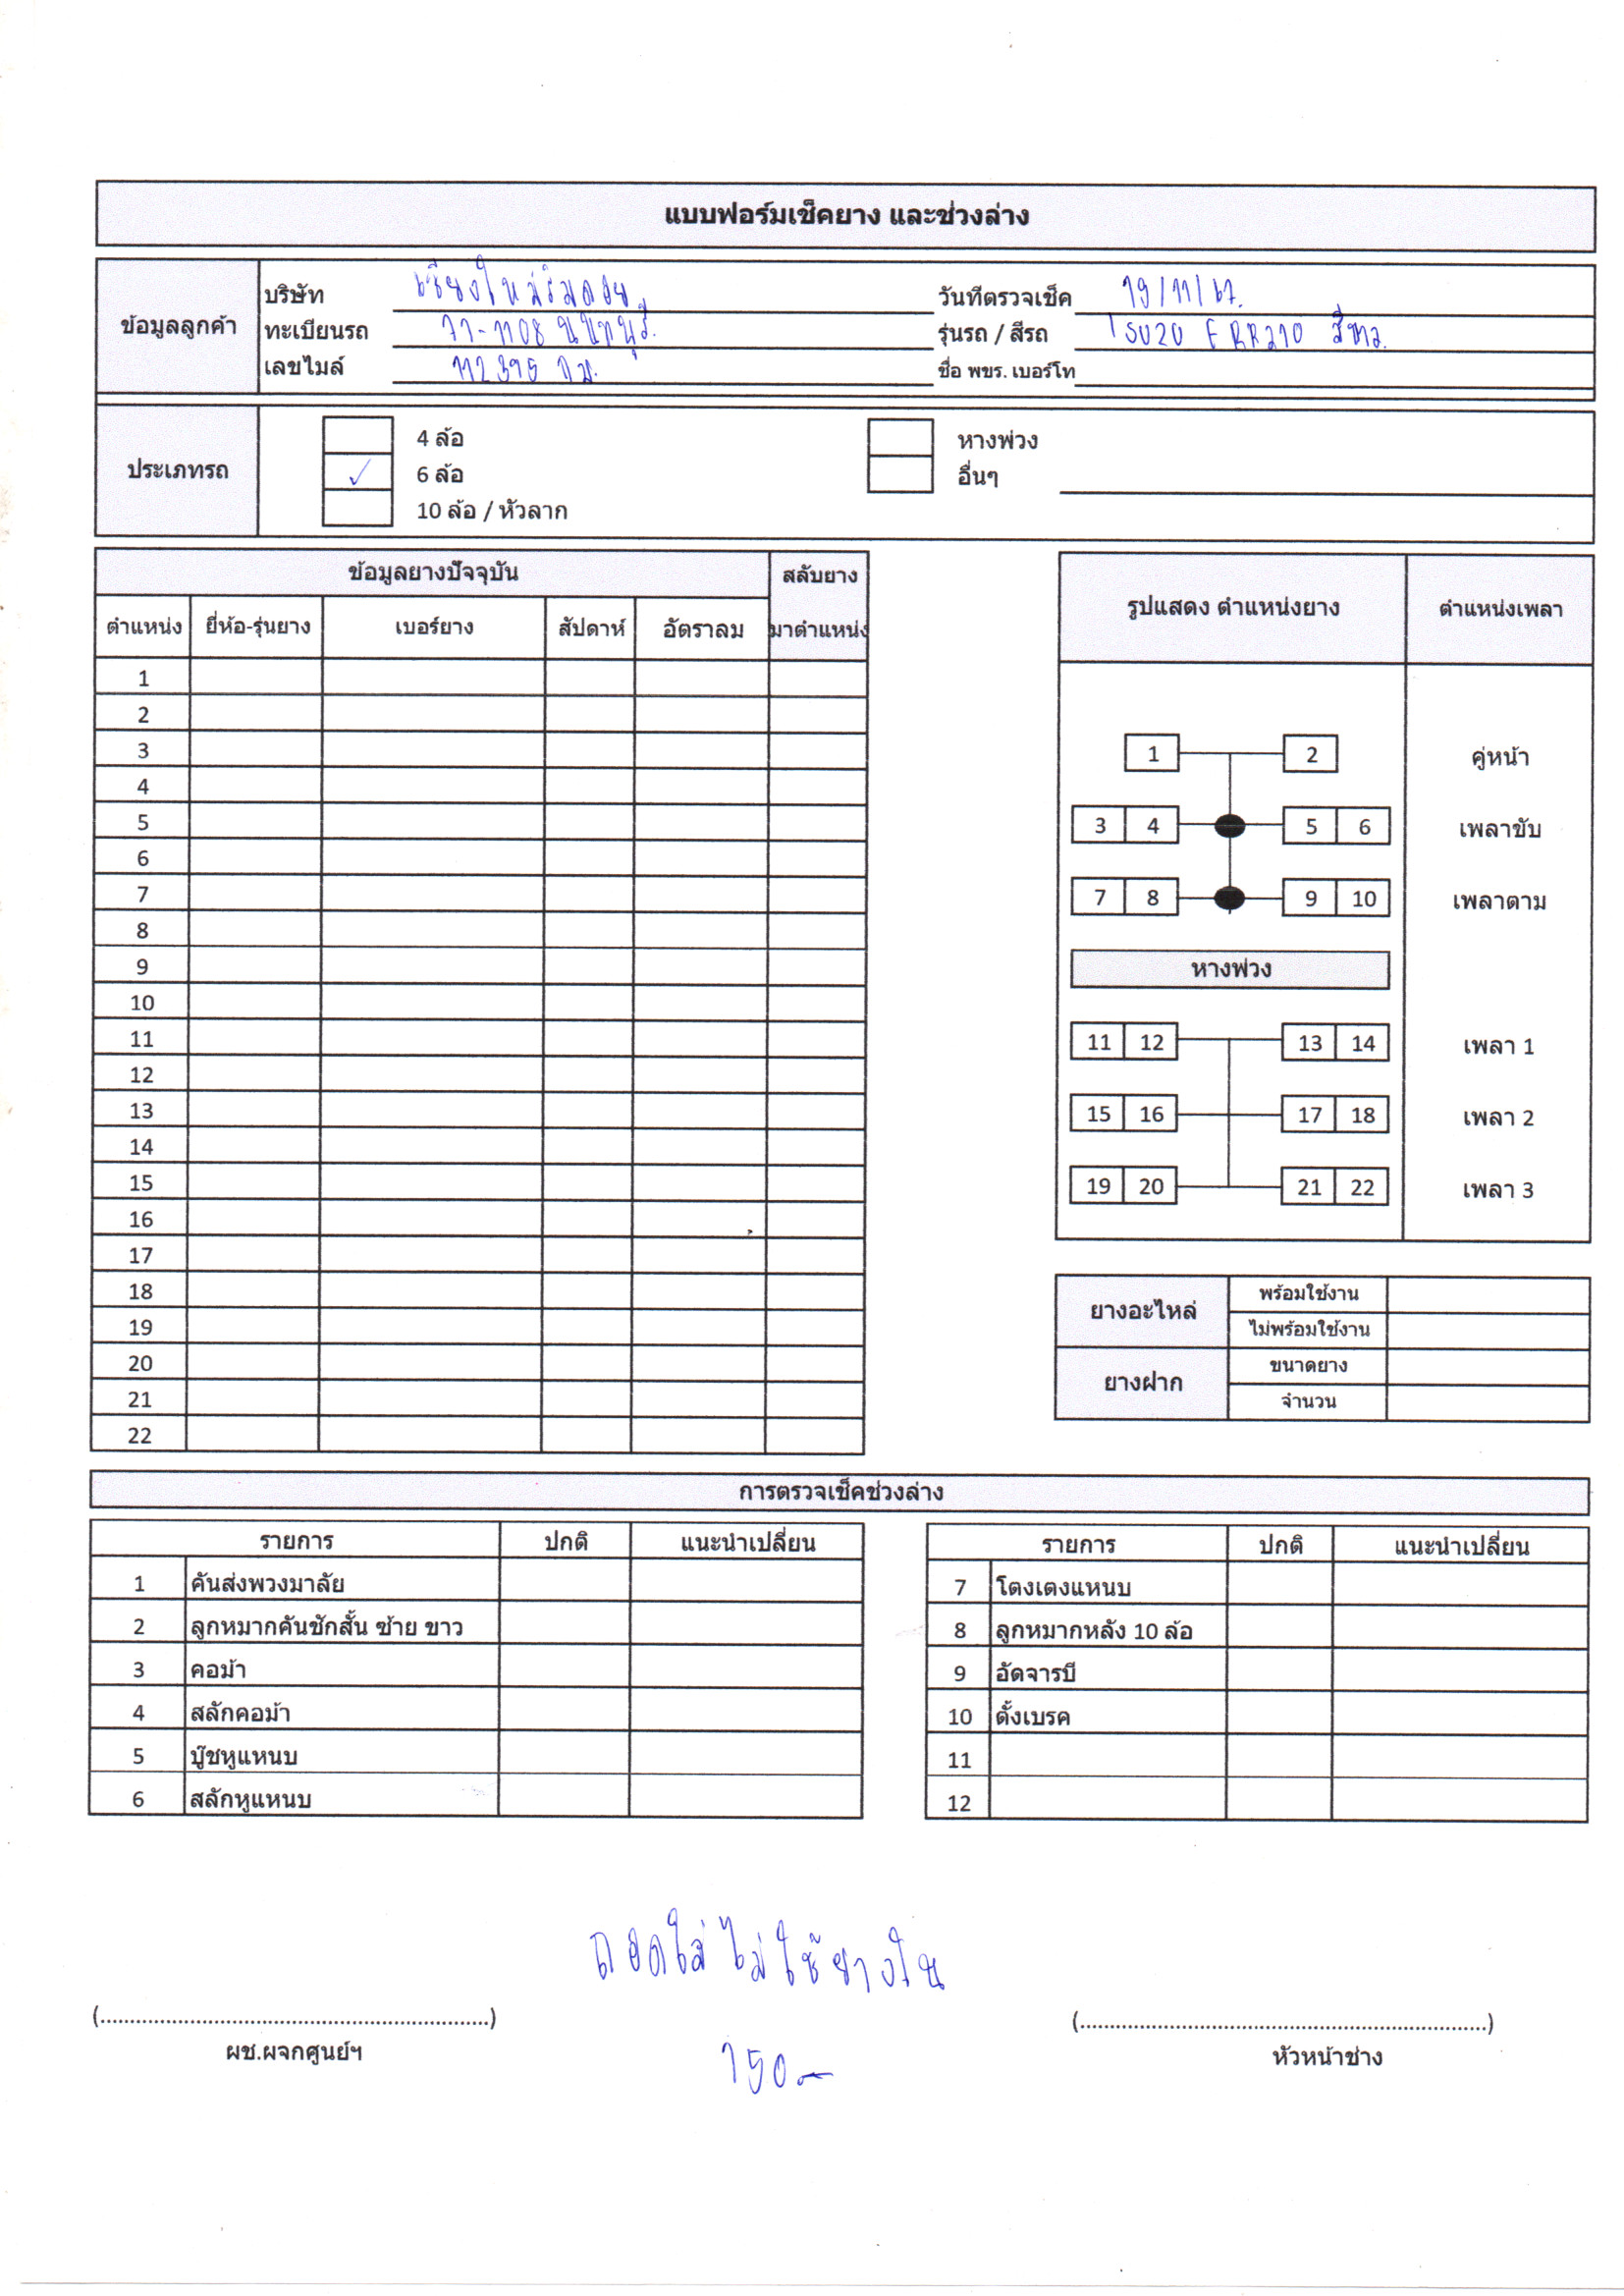 แบบฟอร์มเช็คยาง และช่วงล่าง
ข้อมูลลูกค้า
บริษัท เชียงใหม่ริมดอย
วันที่ตรวจเช็ค 19/11/67.
ทะเบียนรถ 71-1108 นนทบุรี.
รุ่นรถ / สีรถ ISUZU FRR210 สีขาว.
เลขไมล์ 112395 กม.
ชื่อ พขร. เบอร์โท
ประเภทรถ
4 ล้อ
6 ล้อ ✓
10 ล้อ / หัวลาก
หางพ่วง
อื่นๆ
ข้อมูลยางปัจจุบัน สลับยาง
ตำแหน่ง ยี่ห้อ-รุ่นยาง เบอร์ยาง สัปดาห์ อัตราลม มาตำแหน่ง
1
2
3
4
5
6
7
8
9
10
11
12
13
14
15
16
17
18
19
20
21
22
รูปแสดง ตำแหน่งยาง ตำแหน่งเพลา
1 2 คู่หน้า
3 4 5 6 เพลาขับ
7 8 9 10 เพลาตาม
หางพ่วง
11 12 13 14 เพลา 1
15 16 17 18 เพลา 2
19 20 21 22 เพลา 3
ยางอะไหล่ พร้อมใช้งาน
ไม่พร้อมใช้งาน
ยางฝาก ขนาดยาง
จำนวน
การตรวจเช็คช่วงล่าง
รายการ ปกติ แนะนำเปลี่ยน
1 คันส่งพวงมาลัย
2 ลูกหมากคันชักสั้น ซ้าย ขาว
3 คอม้า
4 สลักคอม้า
5 บู๊ชหูแหนบ
6 สลักหูแหนบ
รายการ ปกติ แนะนำเปลี่ยน
7 โตงเตงแหนบ
8 ลูกหมากหลัง 10 ล้อ
9 อัดจารบี
10 ตั้งเบรค
11
12
ถอดใส่ไม่ใช้ยางใน
150
(..................................................................)
ผช.ผจกศูนย์ฯ
(......................................................................)
หัวหน้าช่าง